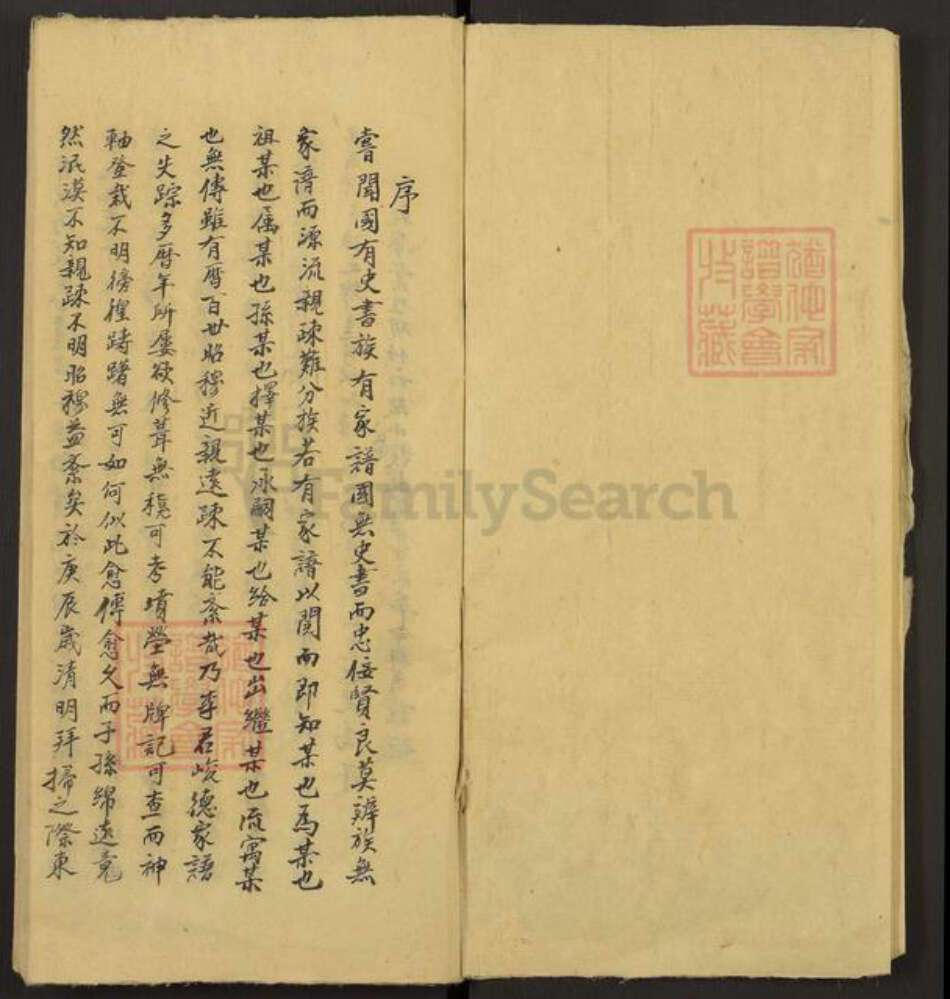 序
嘗聞國有史書族有家譜國無史書而忠佞賢良莫辨族無
家譜而源流親疎難分族若有家譜以閱而即知某也為某也
祖某也属某也孫某也擇某也承嗣某也給某也出繼某也流寓某
也無傳雖有曆百世昭穆近親遠疎不能紊哉乃李君峻德家譜
之失踪多曆年所屢欲修葺無稿可考墳塋無牌記可查而神
軸登載不明徬徨躊躇無可如何似此愈傳愈久而子孫綿遠竟
然泯漠不知親疎不明昭穆益紊矣於庚辰歲清明拜掃之際東
FamilySearch